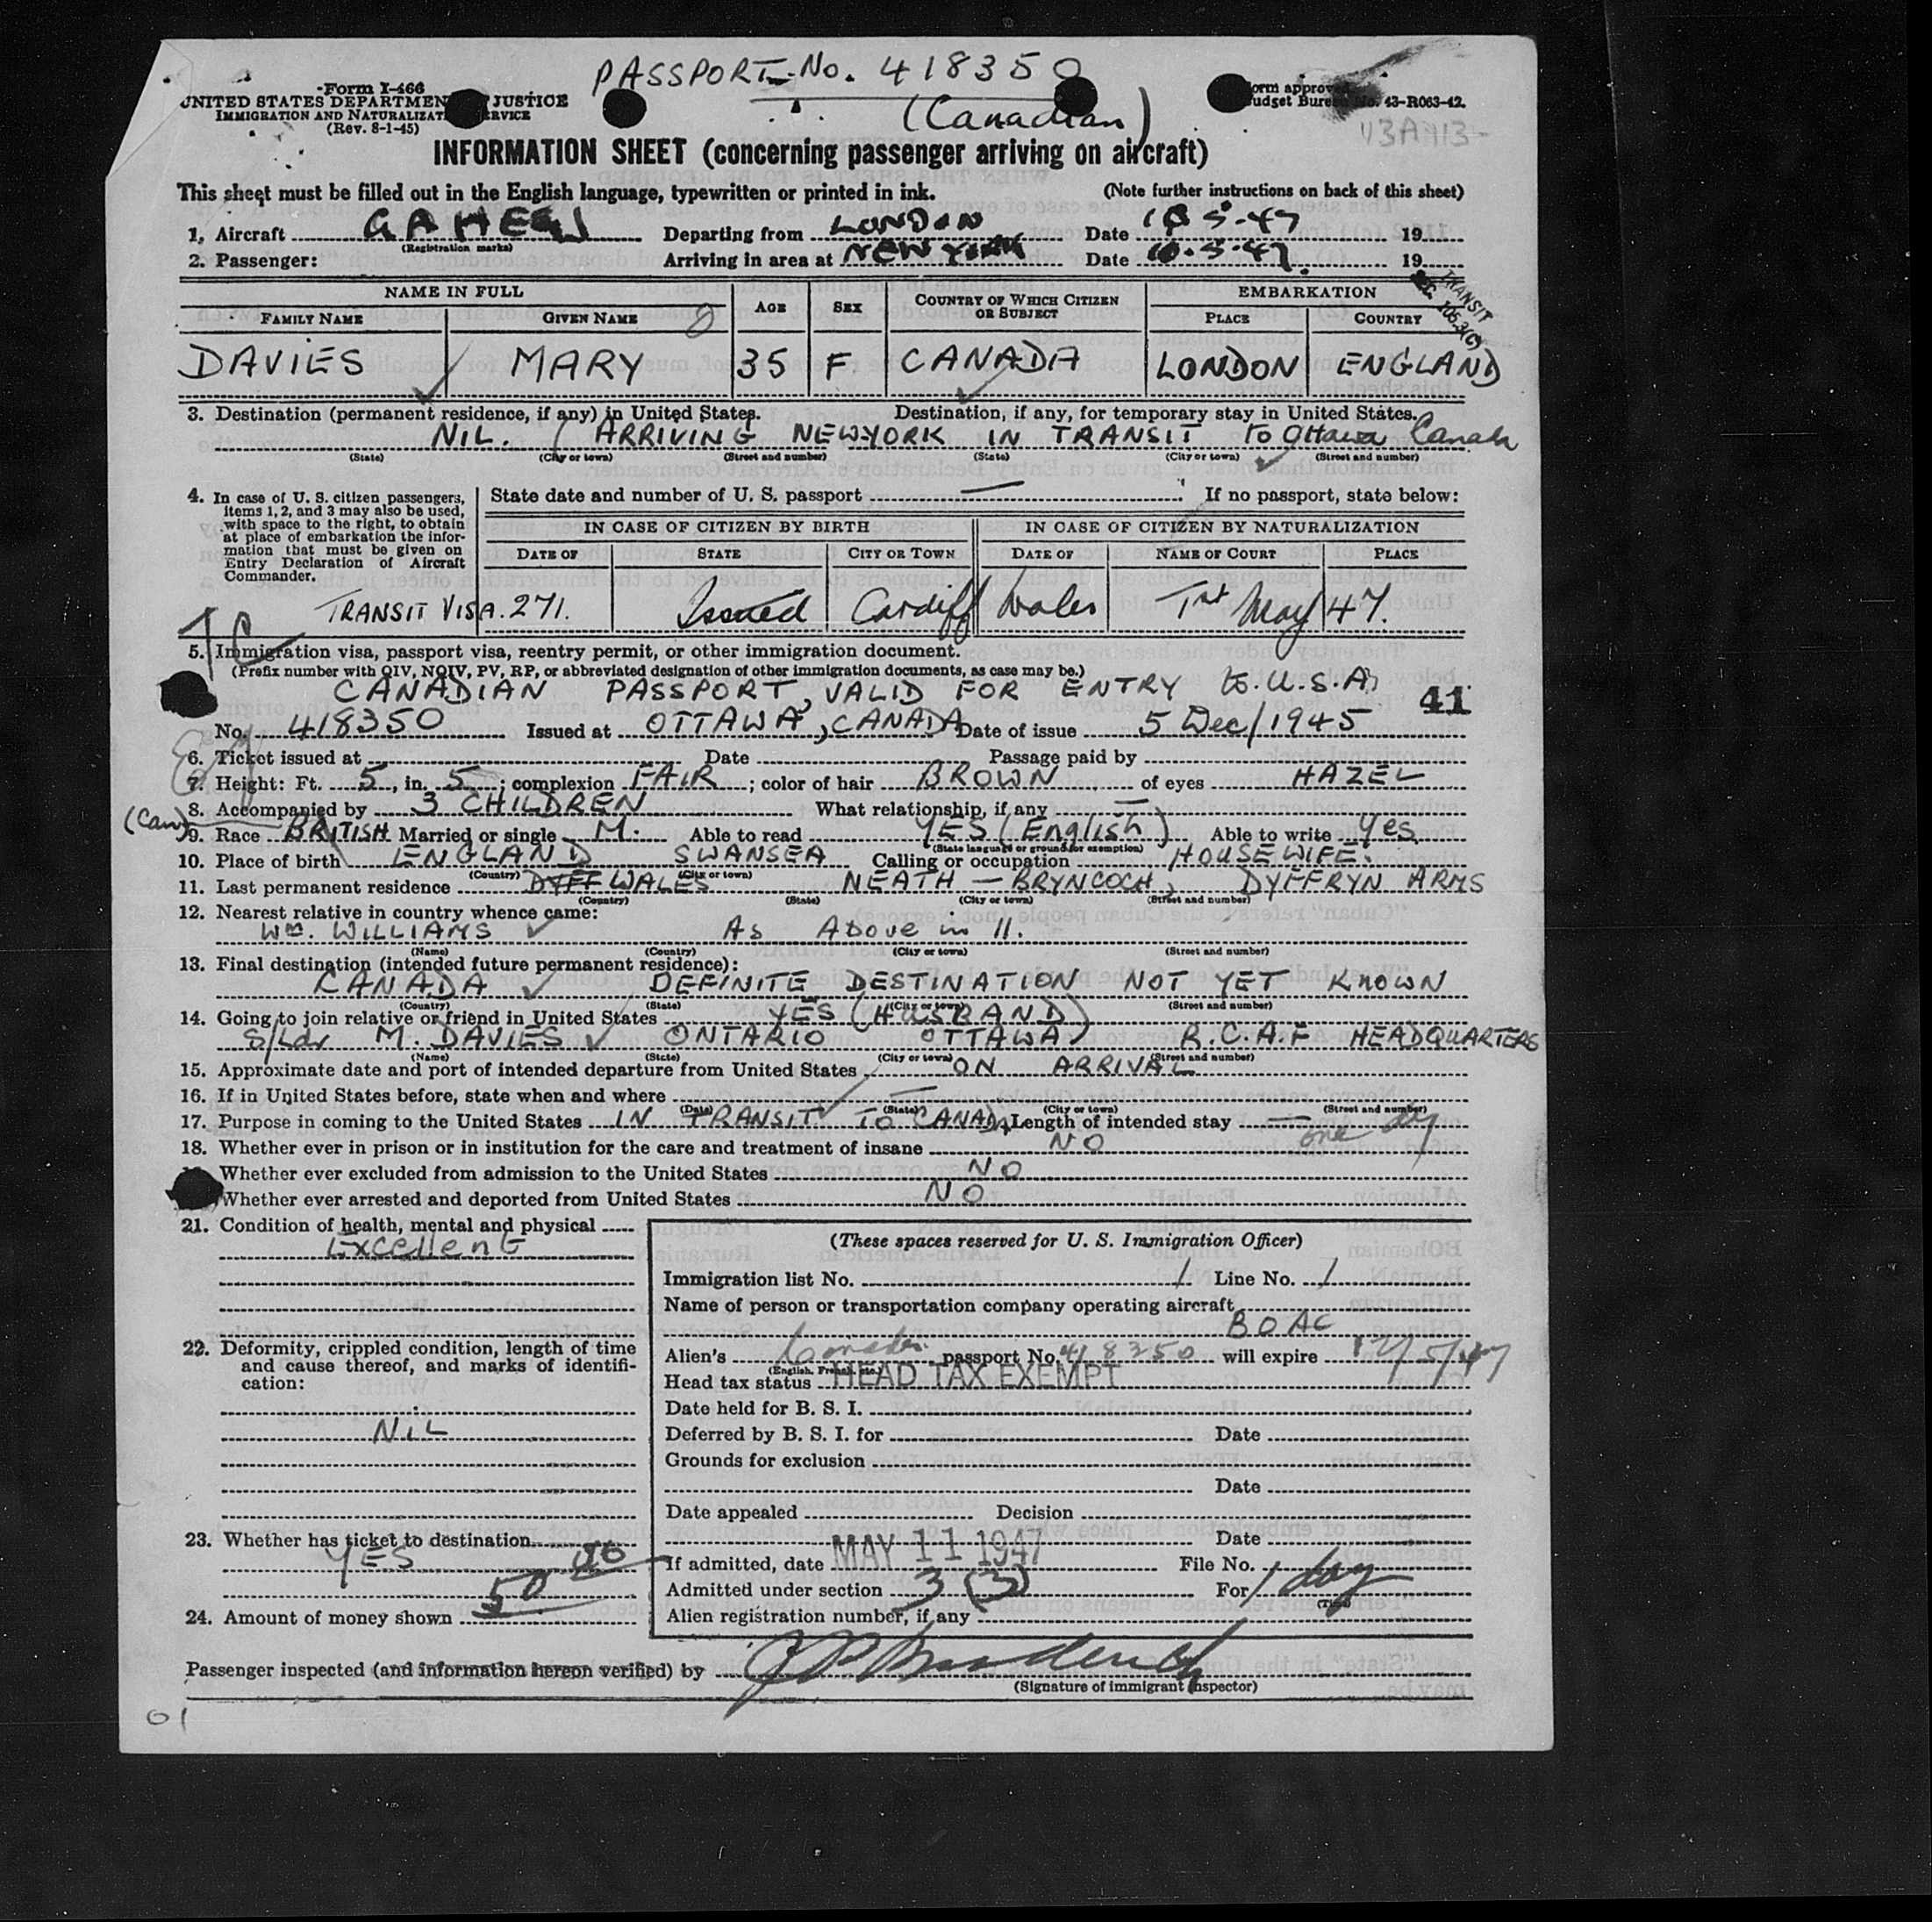 PASSPORT No. 418350
(Canadian)
Form I-466
UNITED STATES DEPARTMENT JUSTICE
IMMIGRATION AND NATURALIZATI ERVICE
(Rev. 8-1-45)
orm approved
udget Bureau No. 43-R063-42.
INFORMATION SHEET (concerning passenger arriving on aircraft)
This sheet must be filled out in the English language, typewritten or printed in ink. (Note further instructions on back of this sheet)
1. Aircraft (Registration marks) Departing from LONDON Date 5-47 19
2. Passenger: Arriving in area at NEW YORK Date 10.5.47. 19
TRANSIT
NAME IN FULL AGE SEX COUNTRY OF WHICH CITIZEN OR SUBJECT EMBARKATION
FAMILY NAME GIVEN NAME PLACE COUNTRY
DAVIES MARY 35 F CANADA LONDON ENGLAND
3. Destination (permanent residence, if any) in United States. Destination, if any, for temporary stay in United States.
NIL. (ARRIVING NEW YORK IN TRANSIT to Ottawa Canada
(State) (City or town) (Street and number) (State) (City or town) (Street and number)
4. In case of U. S. citizen passengers, items 1, 2, and 3 may also be used, with space to the right, to obtain at place of embarkation the information that must be given on Entry Declaration of Aircraft Commander.
State date and number of U. S. passport — If no passport, state below:
IN CASE OF CITIZEN BY BIRTH IN CASE OF CITIZEN BY NATURALIZATION
DATE OF STATE CITY OR TOWN DATE OF NAME OF COURT PLACE
TRANSIT VISA. 271. Issued Cardiff Wales 1st May 47.
5. Immigration visa, passport visa, reentry permit, or other immigration document.
(Prefix number with QIV, NQIV, PV, RP, or abbreviated designation of other immigration documents, as case may be.)
CANADIAN PASSPORT, VALID FOR ENTRY to. U.S.A. 41
No. 418350 Issued at OTTAWA, CANADA Date of issue 5 Dec/1945
6. Ticket issued at Date Passage paid by
7. Height: Ft. 5, in. 5; complexion FAIR; color of hair BROWN of eyes HAZEL
8. Accompanied by 3 CHILDREN What relationship, if any —
(Can) 9. Race BRITISH Married or single M. Able to read YES (English) Able to write Yes
(State language or ground for exemption)
10. Place of birth ENGLAND SWANSEA Calling or occupation HOUSEWIFE.
(Country) (City or town)
11. Last permanent residence WALES NEATH — BRYNCOCH, DYFFRYN ARMS
(Country) (State) (City or town) (Street and number)
12. Nearest relative in country whence came:
Wm. WILLIAMS As Above in 11.
(Name) (Country) (City or town) (Street and number)
13. Final destination (intended future permanent residence):
CANADA DEFINITE DESTINATION NOT YET KNOWN
(Country) (State) (City or town) (Street and number)
14. Going to join relative or friend in United States YES (HUSBAND)
S/Ldr M. DAVIES ONTARIO OTTAWA R.C.A.F HEADQUARTERS
(Name) (State) (City or town) (Street and number)
15. Approximate date and port of intended departure from United States ON ARRIVAL
16. If in United States before, state when and where —
(Date) (State) (City or town) (Street and number)
17. Purpose in coming to the United States IN TRANSIT TO CANADA Length of intended stay — one day
18. Whether ever in prison or in institution for the care and treatment of insane NO
Whether ever excluded from admission to the United States NO
Whether ever arrested and deported from United States NO
21. Condition of health, mental and physical
Excellent
22. Deformity, crippled condition, length of time and cause thereof, and marks of identification:
NIL
23. Whether has ticket to destination
YES
24. Amount of money shown 50 00
(These spaces reserved for U. S. Immigration Officer)
Immigration list No. 1 Line No. 1
Name of person or transportation company operating aircraft
BOAC
Alien's passport No. 418350 will expire
(English, French, etc.)
Head tax status HEAD TAX EXEMPT
Date held for B. S. I.
Deferred by B. S. I. for Date
Grounds for exclusion
Date
Date appealed Decision
Date
If admitted, date MAY 11 1947 File No.
Admitted under section 3 (3) For 1 day
(Time)
Alien registration number, if any
Passenger inspected (and information hereon verified) by
(Signature of immigrant inspector)
01